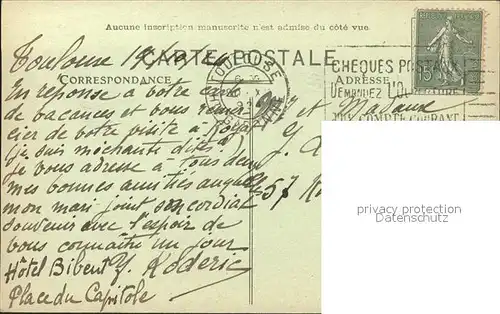 Aucune inscription manuscrite n'est admise du côté vue.
Toulouse 19
CARTE POSTALE
TOULOUSE
CHEQUES POSTAUX
CORRESPONDANCE
ADRESSE
DEMANDEZ L'OUVERTURE
COMPTE COURANT
15
En réponse à votre carte
de vacances et vous remer
cier de votre visite à
je suis méchante dites?
je vous adresse à tous deux
mes bonnes amitiés auxquelles
mon mari joint son cordial
souvenir avec l'espoir de
vous connaître un jour
Hôtel Bibent Y. Roderic
Place du Capitole
et Madame
57
privacy protection
watermark